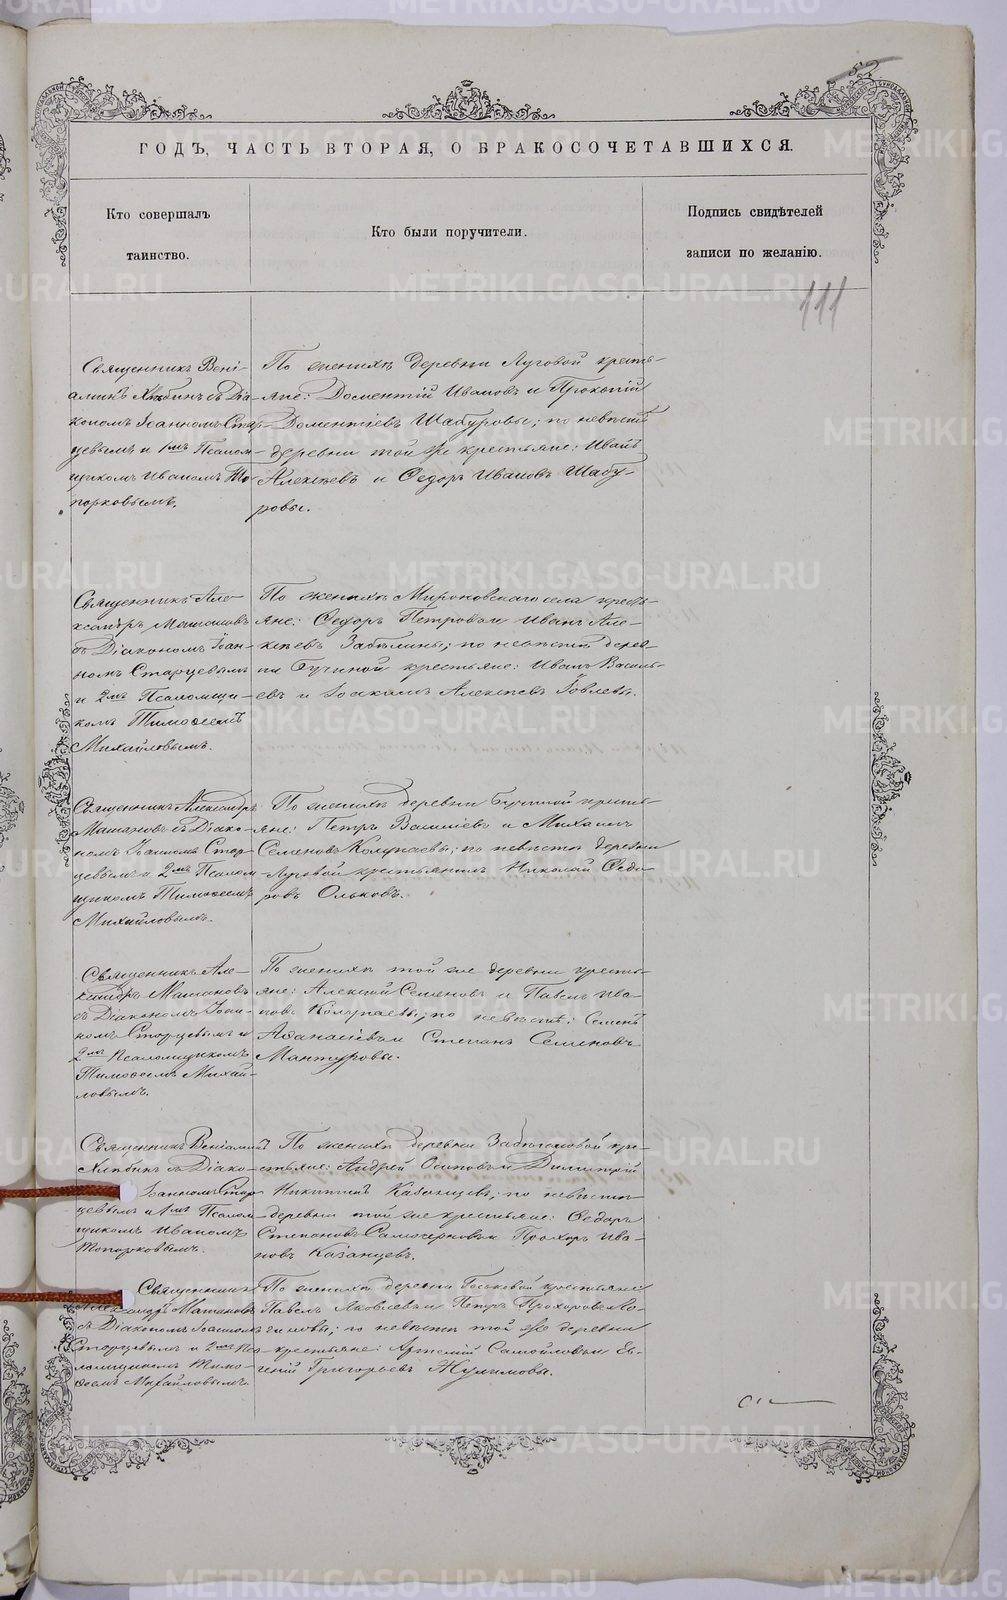 52
ГОДЪ, ЧАСТЬ ВТОРАЯ, О БРАКОСОЧЕТАВШИХСЯ.
Кто совершалъ
таинство.
Кто были поручители.
Подпись свидѣтелей
записи по желанію.
111
Священникъ Вені-
аминъ Хлѣбинъ съ Діа-
кономъ Іоанномъ Стар-
цевымъ и 1мъ Псалом-
щикомъ Иваномъ То-
порковымъ.
По женихѣ деревни Луговой кресть-
яне: Дометтій Ивановъ и Прокопій
Дометтіевъ Шабуровы; по невѣстѣ
деревни той же крестьяне: Иванъ
Алексѣевъ и Ѳедоръ Ивановъ Шабу-
ровы.
Священникъ Але-
ксандръ Мошановъ
съ Діакономъ Іоан-
номъ Старцевымъ
и 2мъ Псаломщи-
комъ Тимоѳеемъ
Михайловымъ.
По женихѣ Мироновскаго села кресть-
яне: Ѳедоръ Петровъ и Иванъ Але-
ксѣевъ Забѣлины; по невѣстѣ дерев-
ни Бучиной крестьяне: Иванъ Василь-
евъ и Іоакимъ Алексѣевъ
Священникъ Александръ
Машановъ съ Діако-
номъ Іоанномъ Стар-
цевымъ и 2мъ Псалом-
щикомъ Тимоѳеемъ
Михайловымъ.
По женихѣ деревни Бучиной кресть-
яне: Петръ Васильевъ и Михаилъ
Семеновъ Колунаевы; по невѣстѣ деревни
Луговой крестьянинъ Николай Ѳедо-
ровъ Ольковъ.
Священникъ Але-
ксандръ Машановъ
съ Діакономъ Іоан-
номъ Старцевымъ и
2мъ Псаломщикомъ
Тимоѳеемъ Михай-
ловымъ.
По женихѣ той же деревни кресть-
яне: Алексѣй Семеновъ и Павелъ Ива-
новъ Колунаевы; по невѣстѣ: Семенъ
Аѳанасіевъ и Степанъ Семеновъ
Мантуровы.
Священникъ Веніаминъ
Хлѣбинъ съ Діако-
Іоанномъ Стар-
цевымъ и 1мъ Псалом-
щикомъ Иваномъ
Топорковымъ.
По женихѣ деревни кре-
стьяне: Андрей Осиповъ и Димитрій
Никитинъ Казанцевъ; по невѣстѣ
деревни той же крестьяне: Ѳедоръ
Степановъ и Прохоръ Ива-
новъ Казанцевъ.
Священникъ
Александръ Машановъ
съ Діакономъ Іоанномъ
Старцевымъ и 2мъ Пса-
ломщикомъ Тимо-
ѳеемъ Михайловымъ.
По женихѣ деревни крестьяне
Павелъ Яковлевъ и Петръ Прохоровъ
по невѣстѣ той же деревни
крестьяне: Артемій Самойловъ и Ев-
геній Григорьевъ